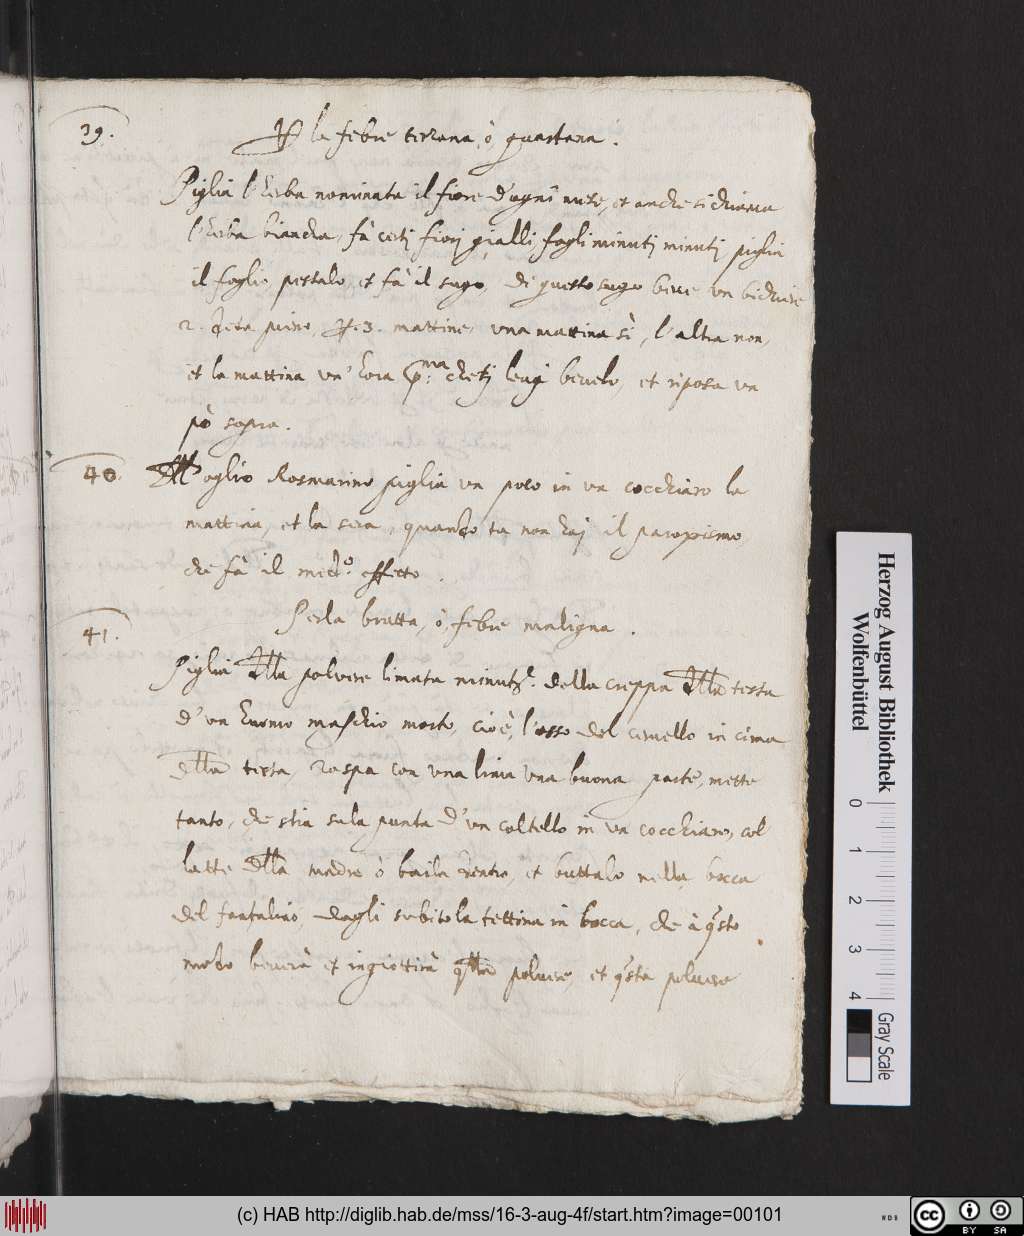 39.
P la febre terzana, ò, quartana.
Piglia l'herba nominata il fiore d'ogni mese, et anche si chiama
l'herba bianca, fà certi fiori gialli, fogli minuti minuti piglia
il foglie pestalo, et fà il sugo, di questo sugo beve un bichiere
2. deta pieno, P 3. mattine, una mattina sì, l'altra non,
et la mattina un'hora p:ma cheti levi bevelo, et riposa un
pò sopra.
40. oglio Rosmarino piglia un poco in un cocchiaro la
mattina, et la sera, quando tu non hai il paropismo
che fà il med:o effetto.
41. Perla brutta, ò, febre maligna.
Piglia dlla polvere limata minut.e della creppa dlla testa
d'un huomo maschio morto, cioè, l'osso del cervello in cima
dlla testa, raspa con una lima una buona parte, mette
tanto, che stia su la punta d'un coltello in un cocchiaro, col
latte dlla madre ò baila dentro, et buttalo nella bocca
del fantalino, dagli subito la tettina in bocca, che à qsto
modo beverà et ingiottirà qlla polvere, et qsta polvere
Herzog August Bibliothek
Wolfenbüttel
0 1 2 3 4
Gray Scale
(c) HAB http://diglib.hab.de/mss/16-3-aug-4f/start.htm?image=00101
WDB
cc BY SA